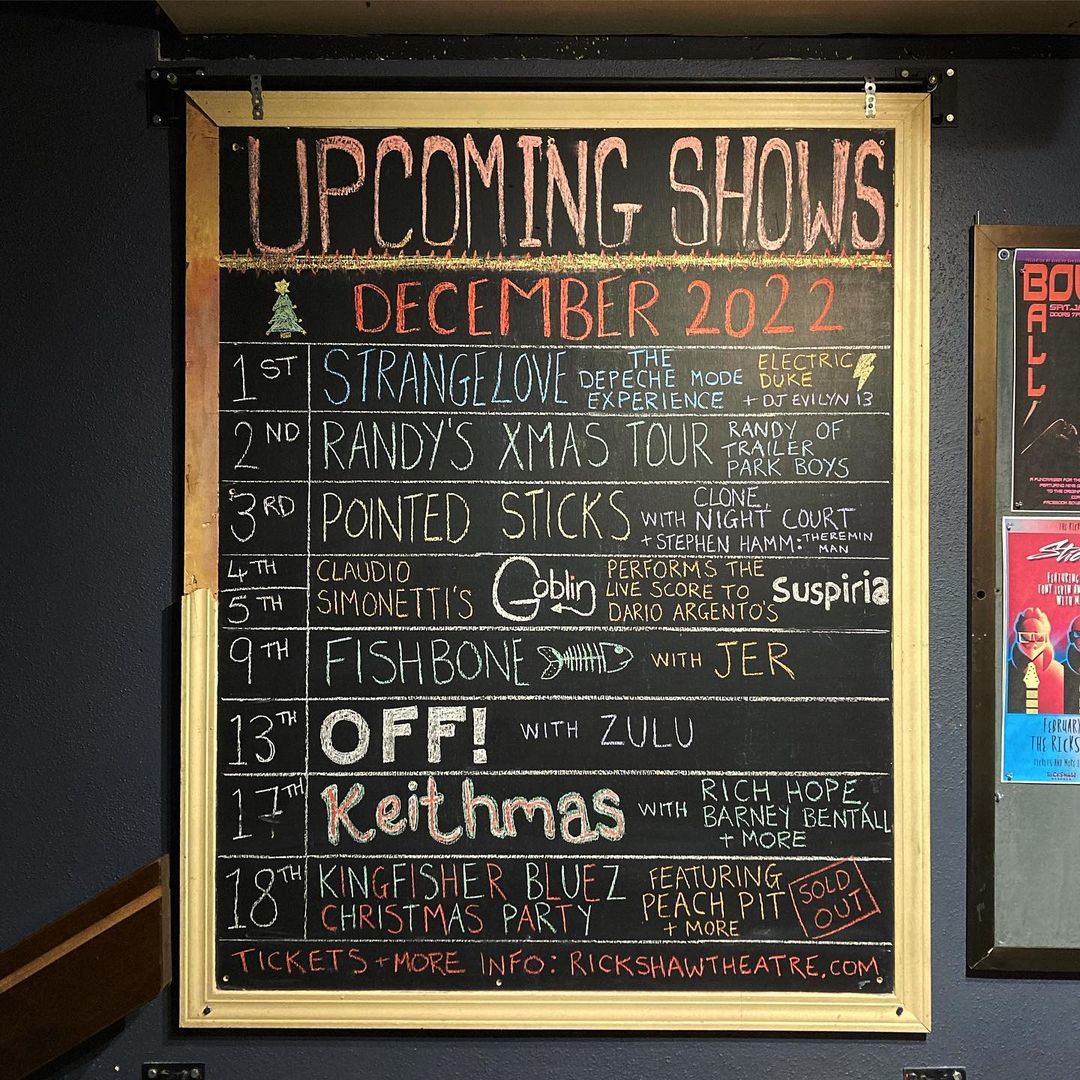 UPCOMING SHOWS
DECEMBER 2022
1ST STRANGELOVE THE DEPECHE MODE EXPERIENCE ELECTRIC DUKE + DJ EVILYN 13
2ND RANDY'S XMAS TOUR RANDY OF TRAILER PARK BOYS
3RD POINTED STICKS WITH CLONE, NIGHT COURT + STEPHEN HAMM: THEREMIN MAN
4TH
5TH
CLAUDIO SIMONETTI'S Goblin PERFORMS THE LIVE SCORE TO DARIO ARGENTO'S Suspiria
9TH FISHBONE WITH JER
13TH OFF! WITH ZULU
17TH Keithmas WITH RICH HOPE, BARNEY BENTALL + MORE
18TH KINGFISHER BLUEZ CHRISTMAS PARTY FEATURING PEACH PIT + MORE SOLD OUT
TICKETS + MORE INFO: RICKSHAWTHEATRE.COM
BALL
FEATURING
WITH
FEBRUARY
THE